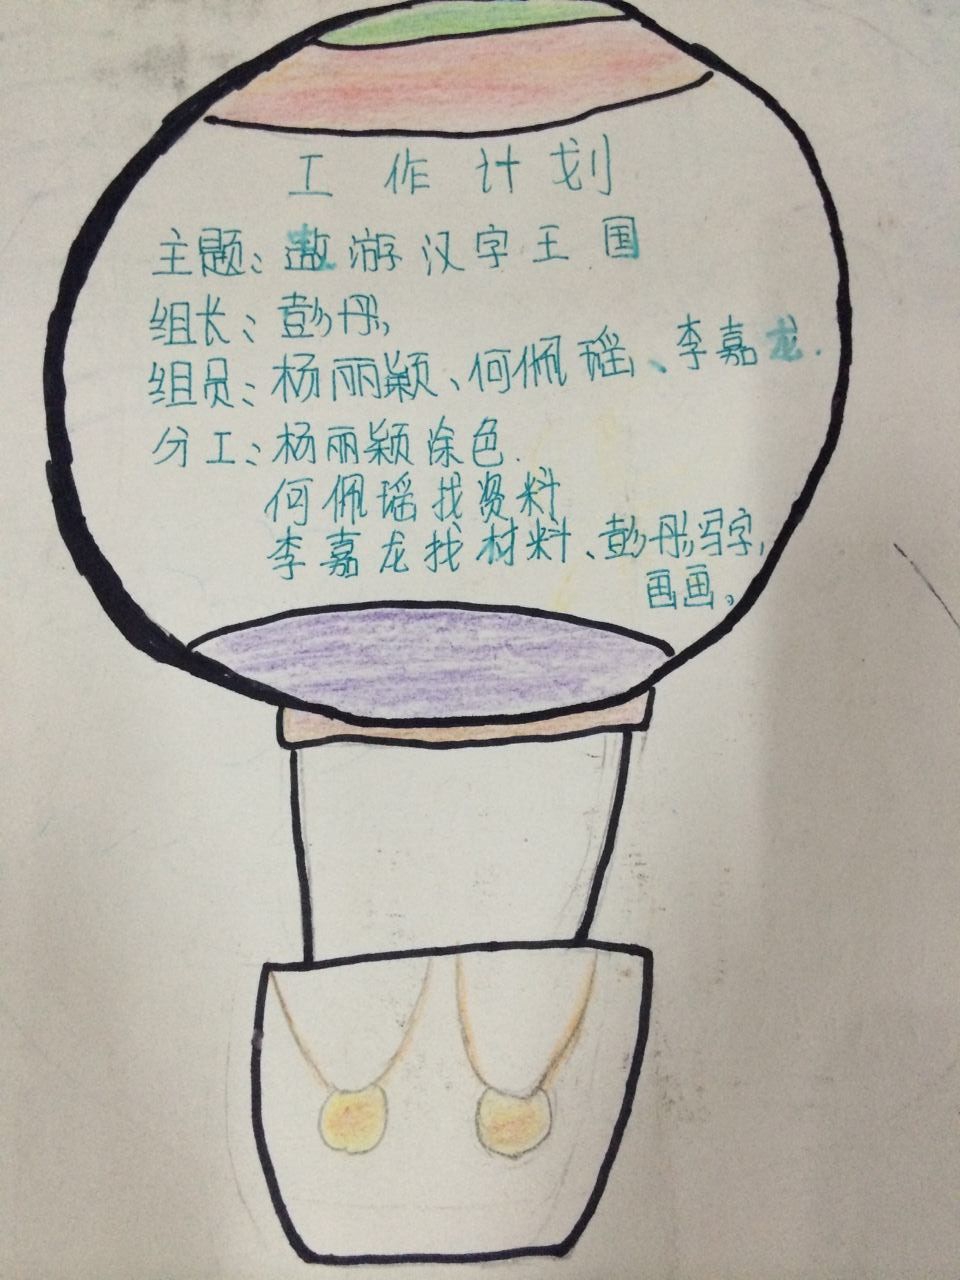 工作计划
主题:遨游汉字王国
组长:彭丹,
组员:杨丽颖、何佩瑶、李嘉龙.
分工:杨丽颖涂色.
何佩瑶找资料
李嘉龙找材料、彭丹写字,
画画。